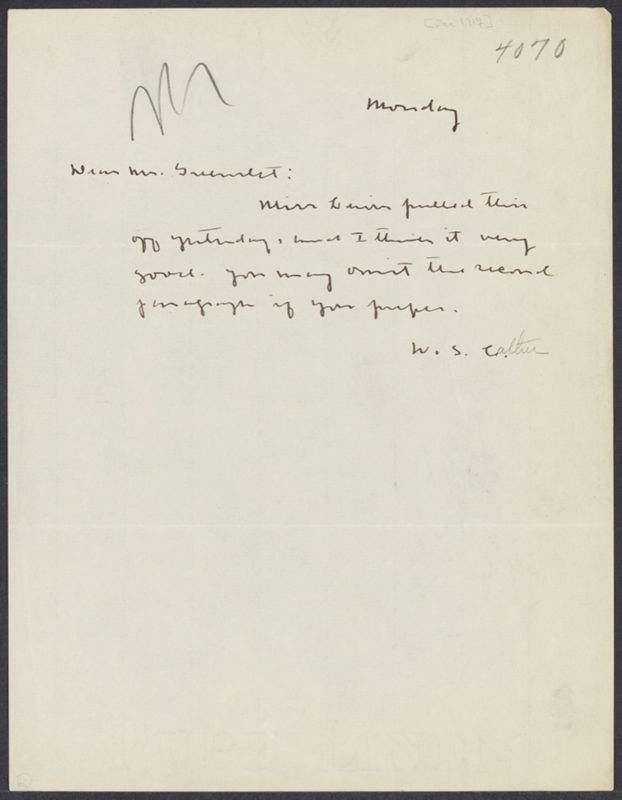 [Dec 1917]
4070
Monday
Dear Mr. Greenslet:
Miss Lewis pulled this
off yesterday, and I think it very
good. You may omit the second
paragraph if you prefer.
W. S. Cather